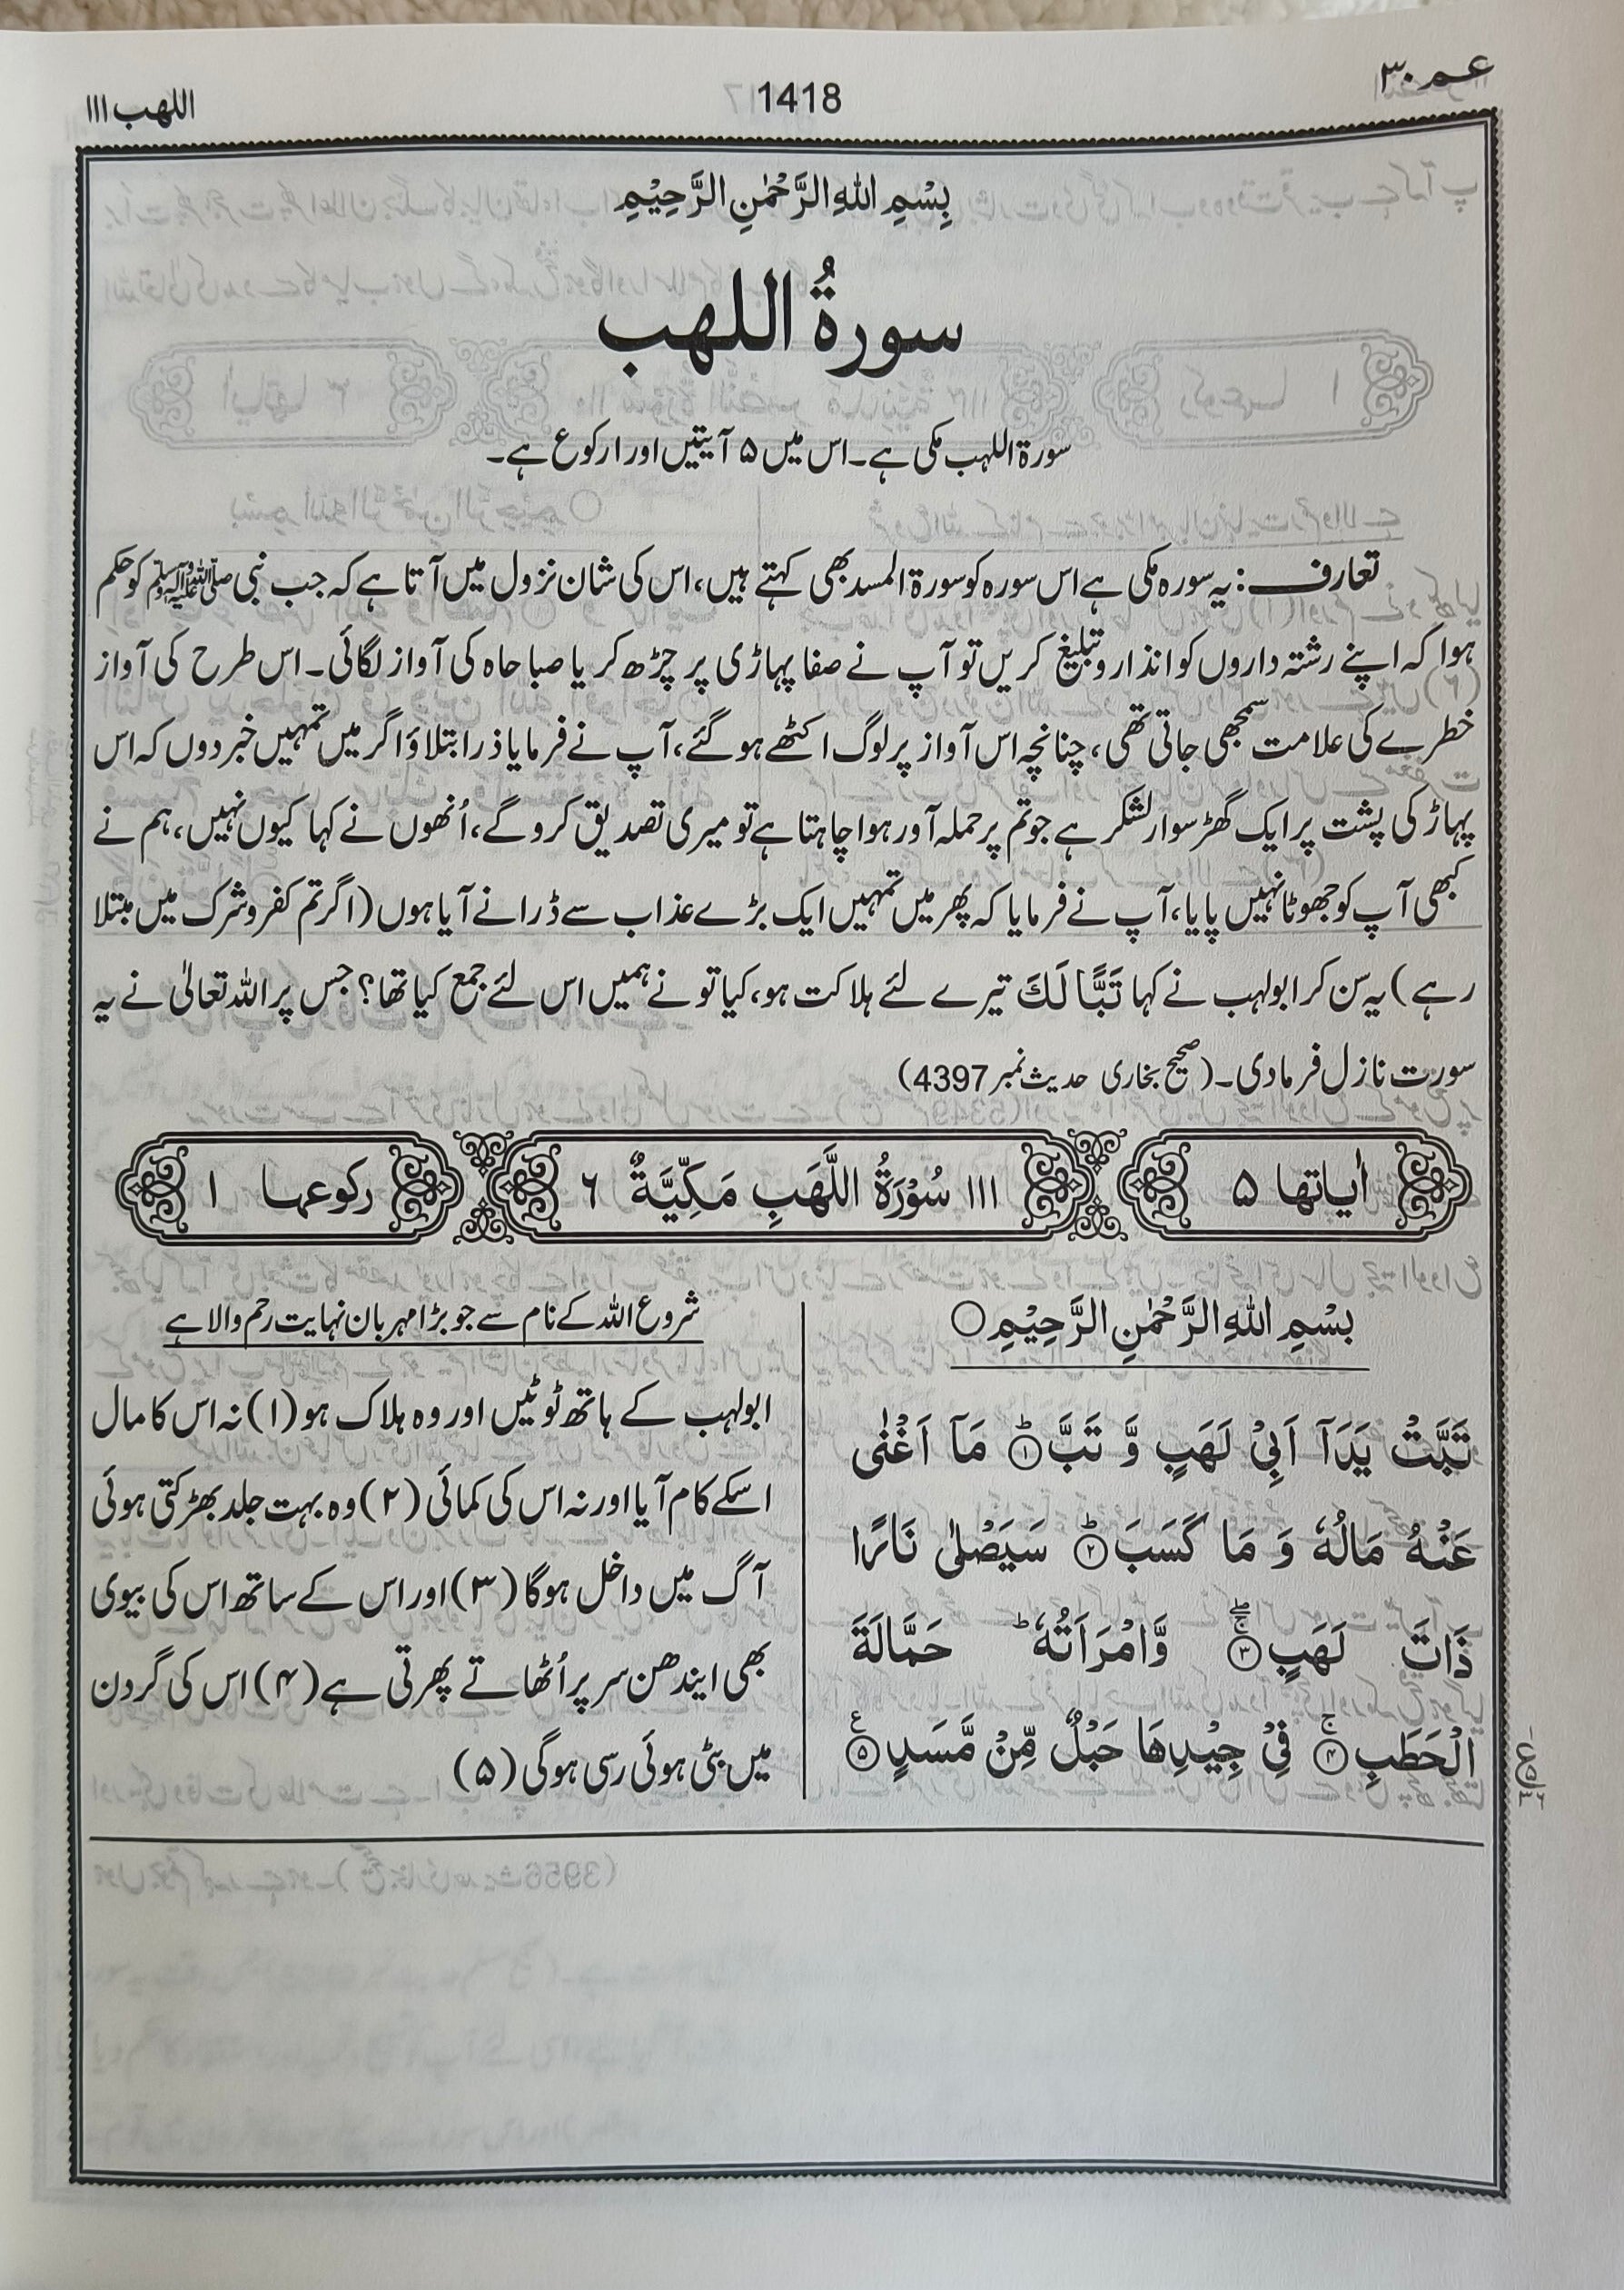 عم ٣٠
1418
اللهب ١١١
بِسْمِ اللهِ الرَّحْمٰنِ الرَّحِيْمِ
سورةُ اللهب
سورۃ اللہب مکی ہے۔ اس میں ۵ آیتیں اور ۱ رکوع ہے۔
تعارف : یہ سورہ مکی ہے اس سورہ کو سورۃ المسد بھی کہتے ہیں، اس کی شان نزول میں آتا ہے کہ جب نبی ﷺ کو حکم
ہوا کہ اپنے رشتہ داروں کو انذار و تبلیغ کریں تو آپ نے صفا پہاڑی پر چڑھ کر یا صبا حاہ کی آواز لگائی۔ اس طرح کی آواز
خطرے کی علامت سمجھی جاتی تھی، چنانچہ اس آواز پر لوگ اکٹھے ہو گئے، آپ نے فرمایا ذرا بتلاؤ اگر میں تمہیں خبر دوں کہ اس
پہاڑ کی پشت پر ایک گھڑ سوار لشکر ہے جو تم پر حملہ آور ہوا چاہتا ہے تو میری تصدیق کرو گے، اُنھوں نے کہا کیوں نہیں، ہم نے
کبھی آپ کو جھوٹا نہیں پایا، آپ نے فرمایا کہ پھر میں تمہیں ایک بڑے عذاب سے ڈرانے آیا ہوں (اگر تم کفر و شرک میں مبتلا
رہے) یہ سن کر ابولہب نے کہا تَبًّا لَكَ تیرے لئے ہلاکت ہو، کیا تو نے ہمیں اس لئے جمع کیا تھا؟ جس پر اللہ تعالیٰ نے یہ
سورت نازل فرمادی۔ (صحیح بخاری حدیث نمبر 4397)
اٰیاتھا ۵ ١١١ سُوْرَةُ اللَّهَبِ مَكِّيَّةٌ ٦ رکوعہا ١
بِسْمِ اللهِ الرَّحْمٰنِ الرَّحِيْمِ ○
تَبَّتْ يَدَآ اَبِيْ لَهَبٍ وَّ تَبَّ ؕ ١ مَآ اَغْنٰى
عَنْهُ مَالُهٗ وَ مَا كَسَبَ ؕ ٢ سَيَصْلٰى نَارًا
ذَاتَ لَهَبٍ ٣ وَّامْرَاَتُهٗ ؕ حَمَّالَةَ
الْحَطَبِ ۚ ٤ فِيْ جِيْدِهَا حَبْلٌ مِّنْ مَّسَدٍ ٥
شروع اللہ کے نام سے جو بڑا مہربان نہایت رحم والا ہے
ابولہب کے ہاتھ ٹوٹیں اور وہ ہلاک ہو (۱) نہ اس کا مال
اسکے کام آیا اور نہ اس کی کمائی (۲) وہ بہت جلد بھڑکتی ہوئی
آگ میں داخل ہوگا (۳) اور اس کے ساتھ اس کی بیوی
بھی ایندھن سر پر اُٹھاتے پھرتی ہے (۴) اس کی گردن
میں بٹی ہوئی رسی ہوگی (۵)